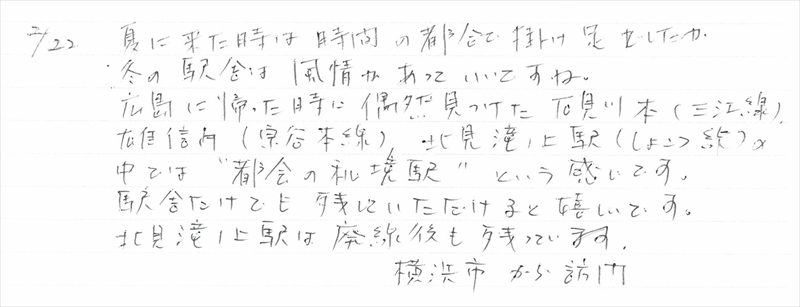 2/22 夏に来た時は時間の都合で掛け足でしたが
冬の駅舎は風情があっていいですね。
広島に帰った時に偶然見つけた石見川本（三江線）
雄信内（宗谷本線）、北見滝ノ上駅（しょこつ線）の
中では“都会の秘境駅”という感じです。
駅舎だけでも残していただけると嬉しいです。
北見滝ノ上駅は廃線後も残っています。
横浜市から訪問